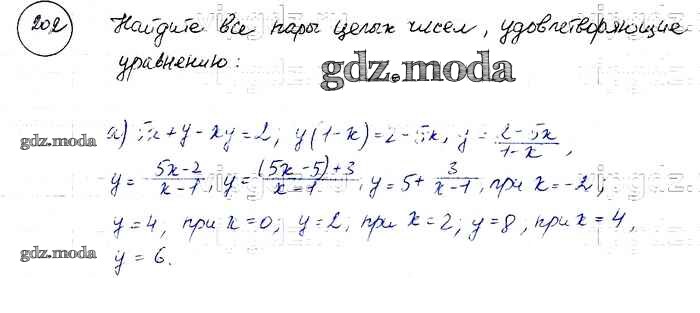 202 Найдите все пары целых чисел, удовлетворяющие
уравнению:
gdz.moda
gdz.moda
а) 5x + y - xy = 2; y(1-x) = 2 - 5x, y = \frac{2-5x}{1-x},
y = \frac{5x-2}{x-1}, y = \frac{(5x-5)+3}{x-1}, y = 5 + \frac{3}{x-1}, при x = -2;
y = 4, при x = 0; y = 2, при x = 2; y = 8, при x = 4,
gdz.moda
y = 6.